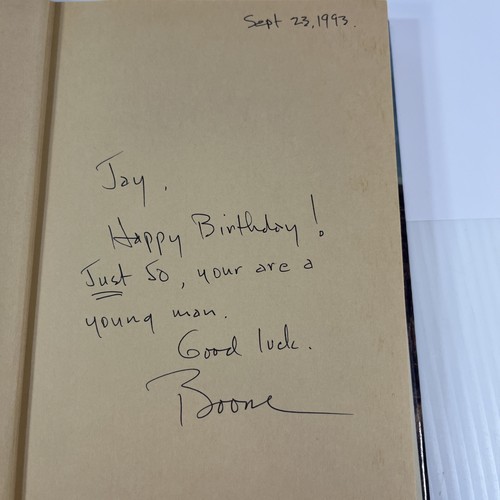 Sept 23, 1993.
Jay,
Happy Birthday!
Just 50, your are a
young man.
Good luck.
Boone